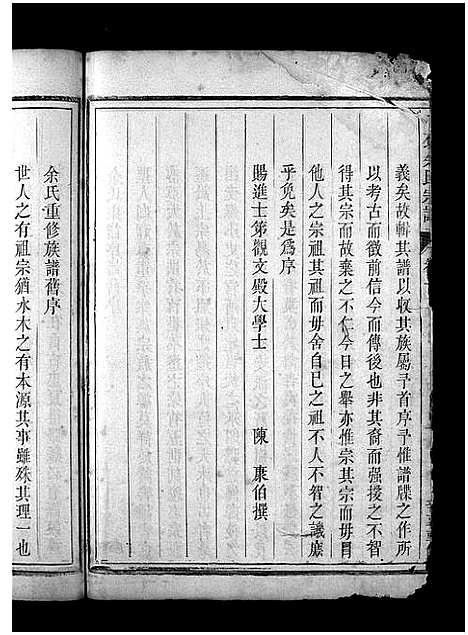 義矣故輯其譜以收其族屬予首序予惟譜牒之作所
以考古而徵前信今而傳後也非其裔而强援之不智
得其宗而故棄之不仁今日之舉亦惟宗其宗而毋冒
他人之宗祖其祖而毋舍自已之祖不人不智之譏庶
乎免矣是爲序
賜進士第觀文殿大學士 陳 康伯撰
余氏重修族譜舊序
世人之有祖宗猶水木之有本源其事雖殊其理一也